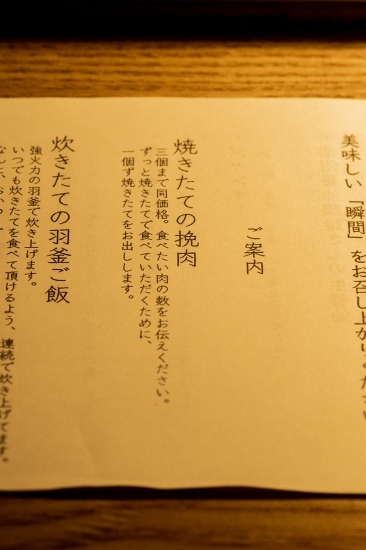 美味しい「瞬間」をお召し上がりください
ご案内
焼きたての挽肉
三個まで同価格。食べたい肉の数をお伝えください。
ずっと焼きたてで食べていただくために、
一個ず焼きたてをお出しします。
炊きたての羽釜ご飯
強火力の羽釜で炊き上げます。
いつでも炊きたてを食べて頂けるよう、連続で炊き上げてます。